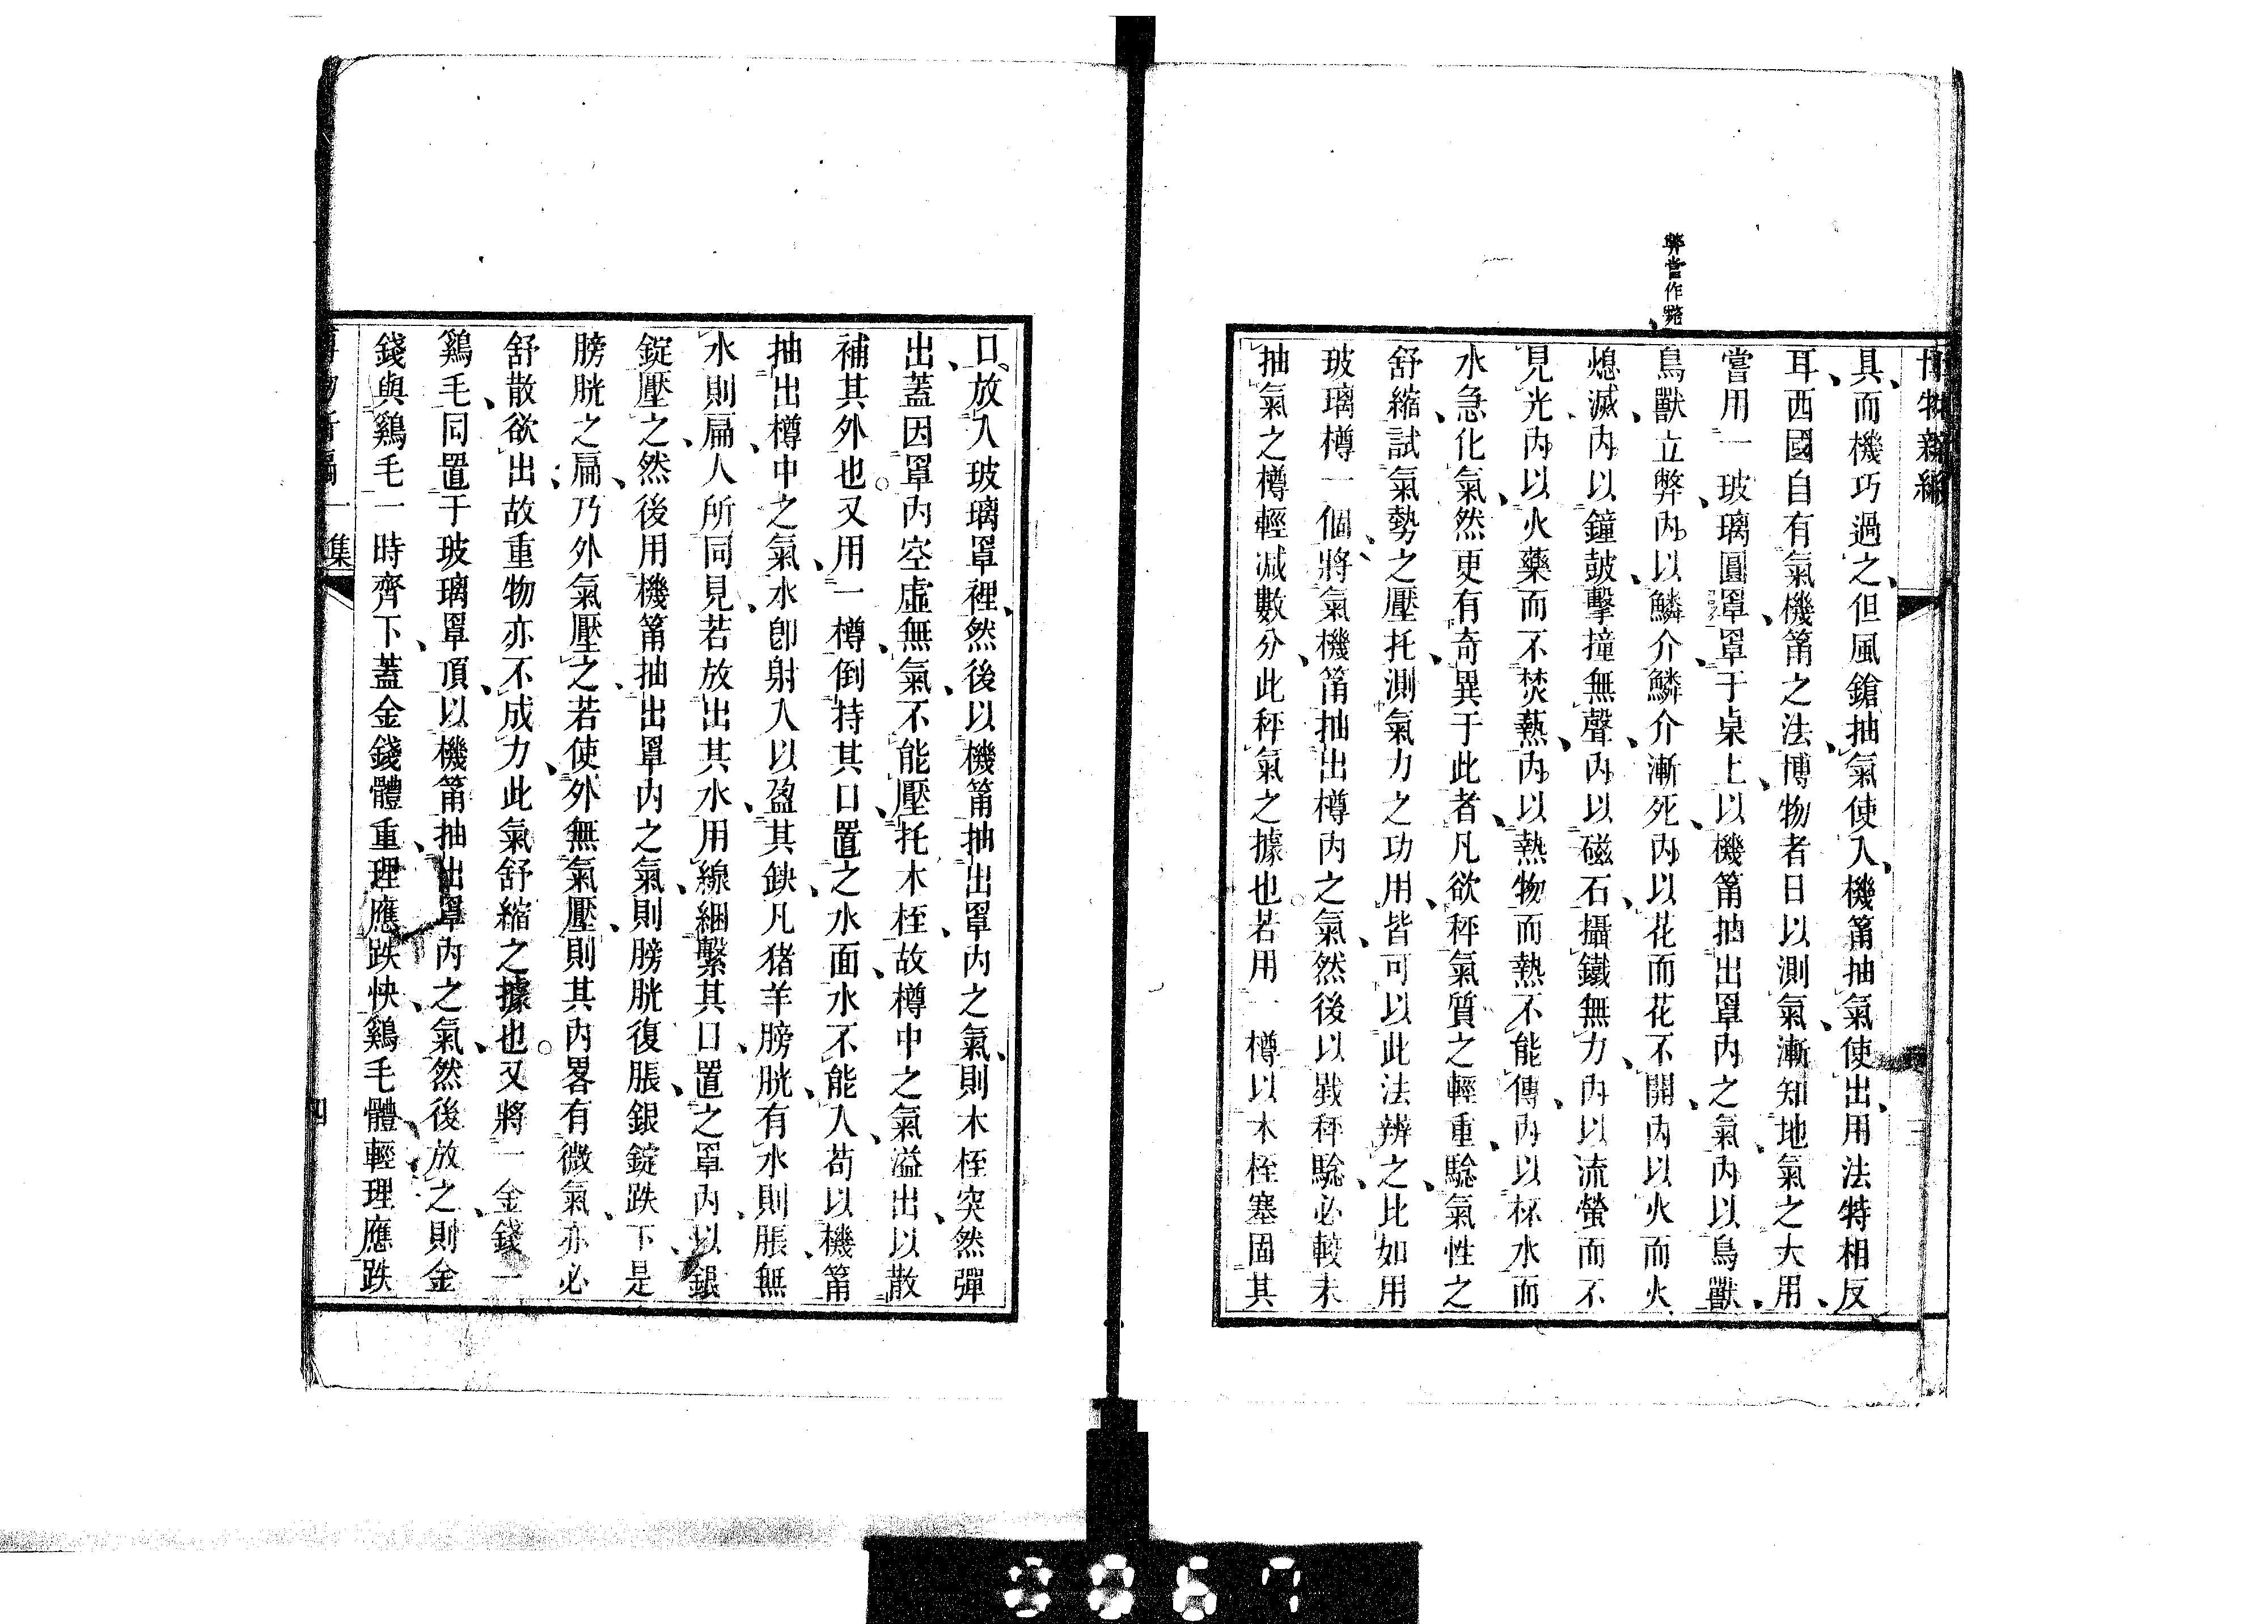 博物新編
三
具、而機巧過之、但風鎗抽氣使入、機筩抽氣使出、用法特相反
耳、西國自有氣機筩之法、博物者日以測氣、漸知地氣之大用、
嘗用一玻璃圓罩、罩于桌上、以機筩抽出罩內之氣、內以鳥獸、
弊當作斃
鳥獸立弊、內以鱗介、鱗介漸死、內以花而花不開、內以火而火
熄滅、內以鐘皷、擊撞無聲、內以磁石、攝鐵無力、內以流螢而不
見光、內以火藥而不焚爇、內以熱物而熱不能傳、內以杯水而
水急化氣、然更有奇異于此者、凡欲秤氣質之輕重、騐氣性之
舒縮、試氣勢之壓托、測氣力之功用、皆可以此法辨之、比如用
玻璃樽一個、將氣機筩抽出樽內之氣、然後以戥秤騐、必較未
抽氣之樽輕減數分、此秤氣之據也。若用一樽以木桎塞固其
口、放入玻璃罩裡、然後以機筩抽出罩內之氣、則木桎突然彈
出、蓋因罩內空虛無氣、不能壓托木桎、故樽中之氣溢出、以散
補其外也。又用一樽、倒持其口、置之水面、水不能入、苟以機筩
抽出樽中之氣、水卽射入以盈其缺、凡猪羊膀胱、有水則脹、無
水則扁、人所同見、若放出其水、用線綑繫其口、置之罩內、以銀
錠壓之、然後用機筩抽出罩內之氣、則膀胱復脹、銀錠跌下、是
膀胱之扁、乃外氣壓之、若使外無氣壓、則其內畧有微氣、亦必
舒散欲出、故重物亦不成力、此氣舒縮之據也。又將一金錢、一
鷄毛、同置于玻璃罩頂、以機筩抽出罩內之氣、然後放之、則金
錢與鷄毛一時齊下、蓋金錢體重、理應跌快、鷄毛體輕、理應跌
一集
四
0067